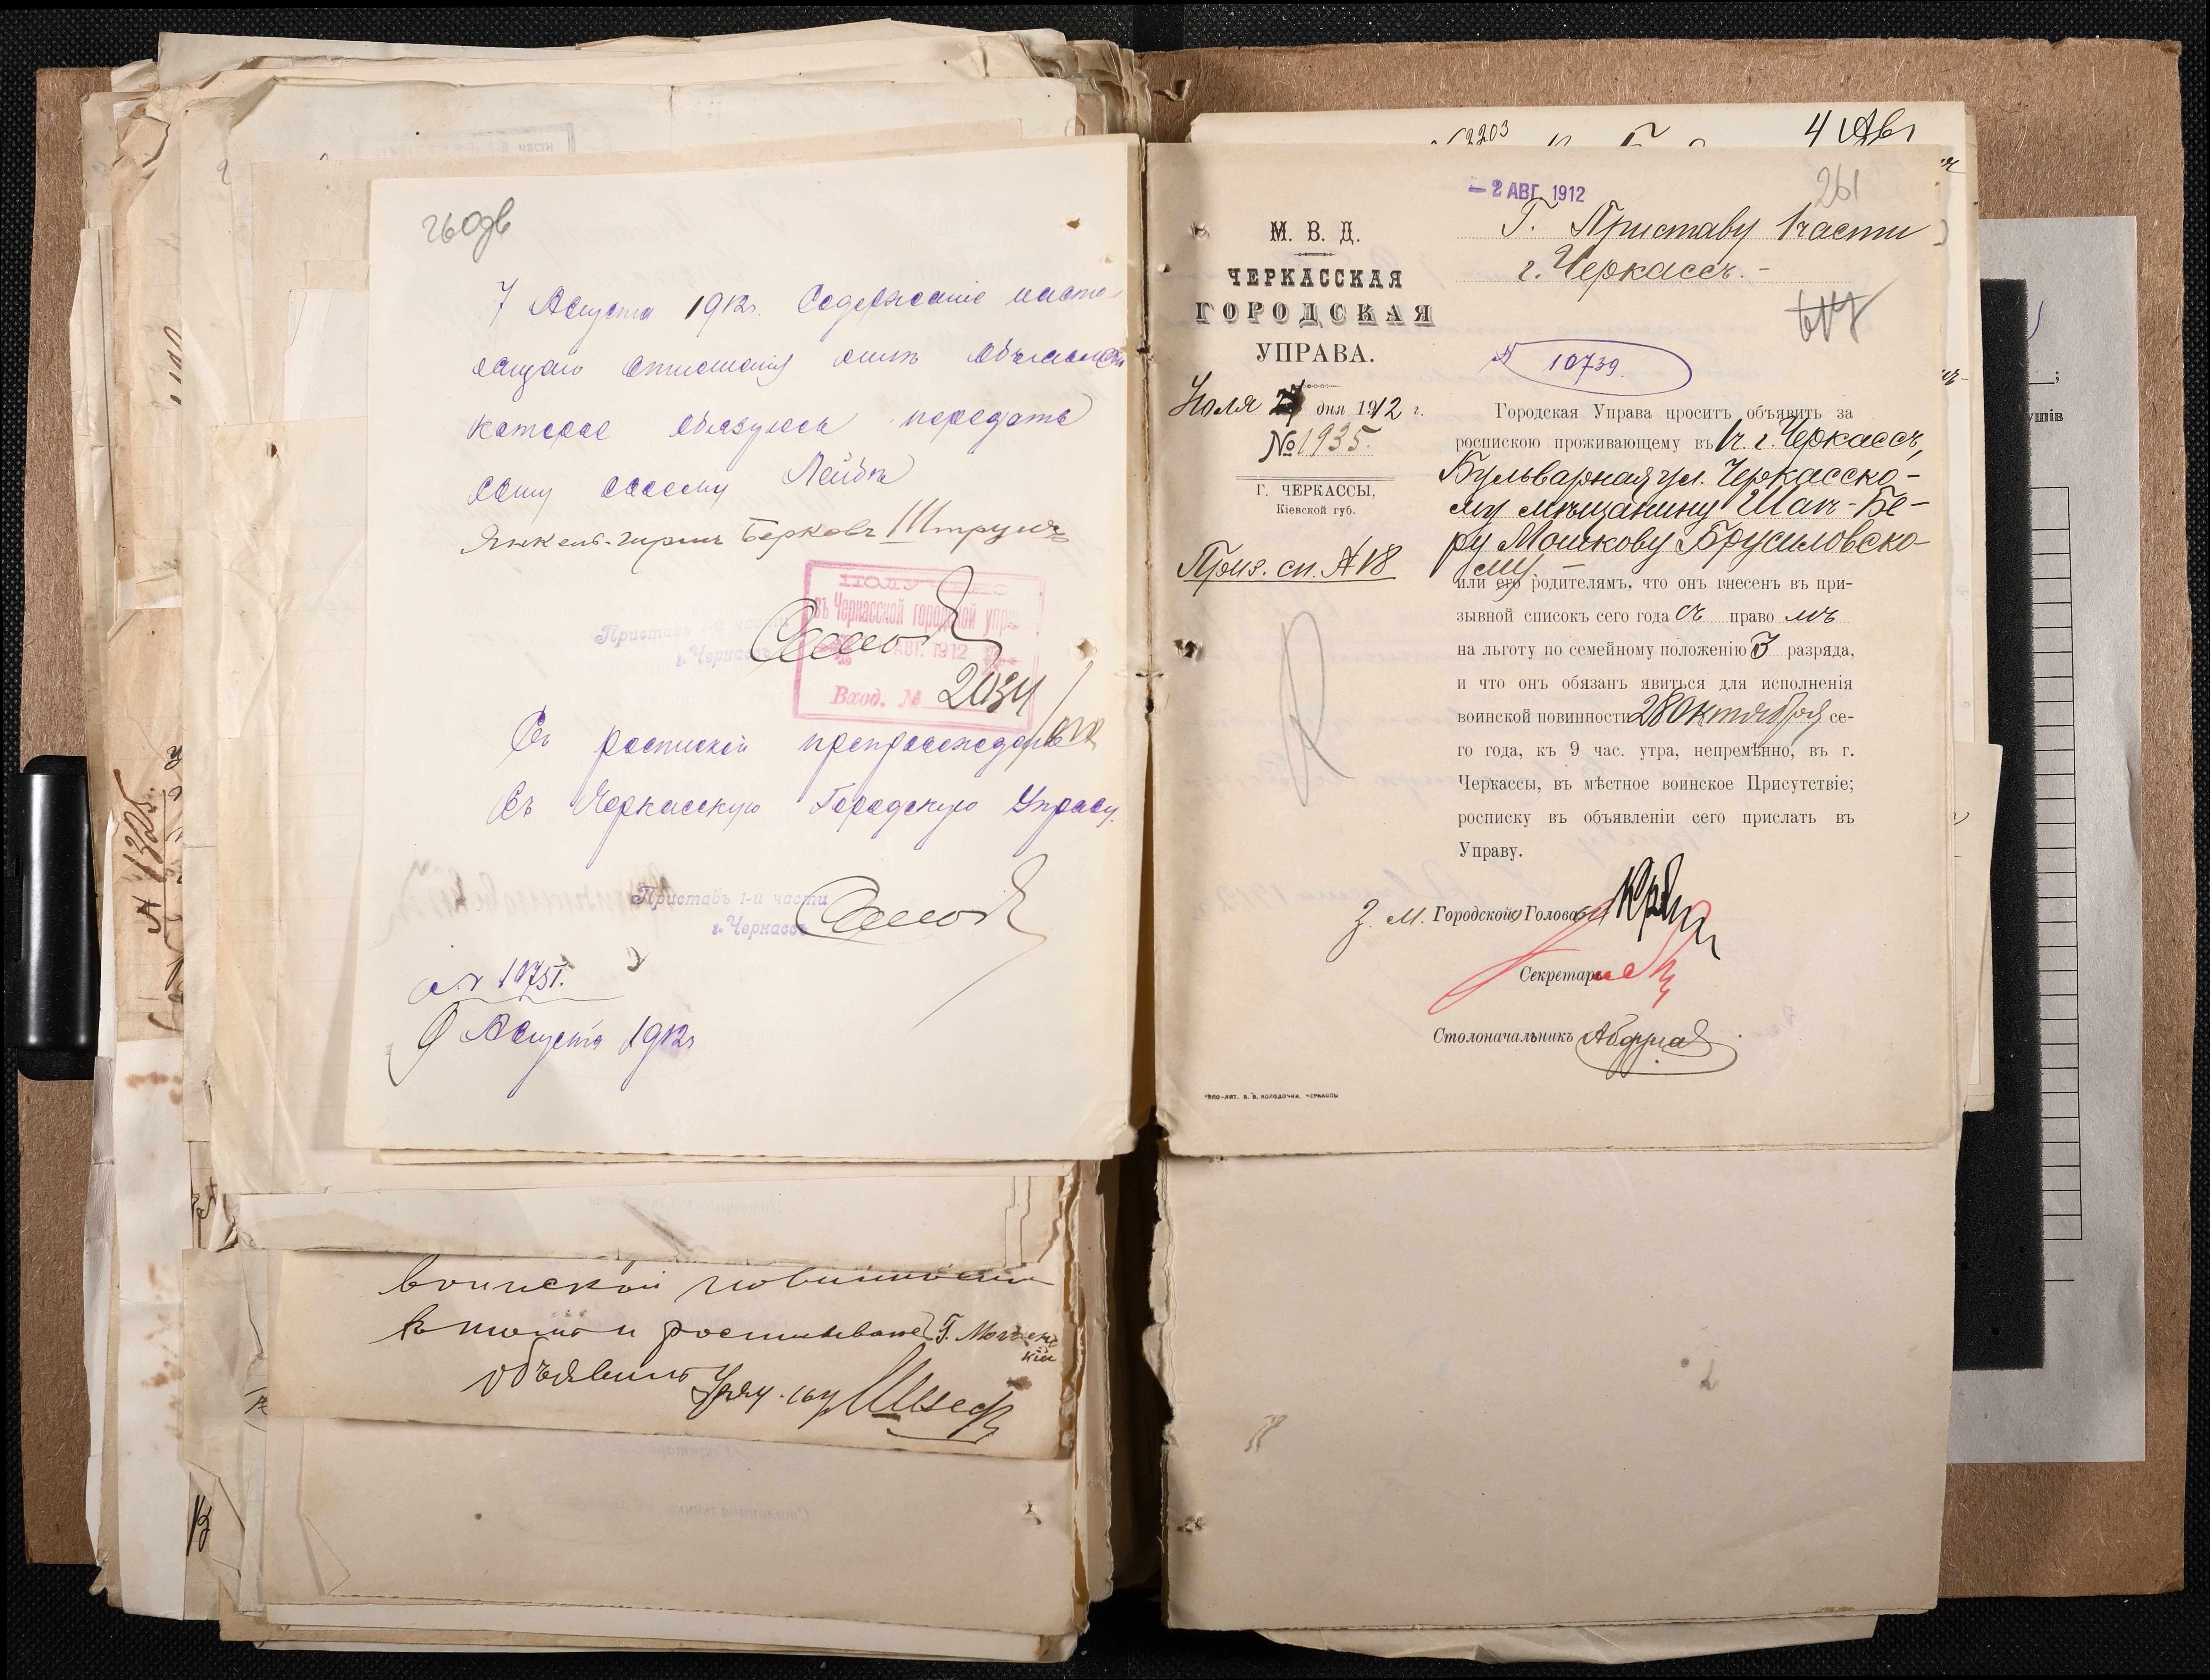 260дв
7 Августа 1912г. Содержание насто-
ящаго отношения мнѣ объявлено
которое обязуюсь передать
сыну своему Лейбѣ
Янкель-Гирш Берковъ Штрумъ
ПОЛУЧЕНО
въ Черкасской городской упр
АВГ. 1912
Вход. № 2034
Приставъ 1-й части
г. Черкассъ
Съ роспиской препровождаю
въ Черкасскую Городскую Управу.
Приставъ 1-й части
г. Черкассъ
№ 10751.
9 Августа 1912г
воинской повинности
въ томъ и росписываюсь
объявилъ
12203
4 Авг
– 2 АВГ. 1912
261
М. В. Д.
ЧЕРКАССКАЯ
ГОРОДСКАЯ
УПРАВА.
Июля 27 дня 1912 г.
№ 1935.
Г. ЧЕРКАССЫ,
Кіевской губ.
Приз. сп. № 18
Г. Приставу 1 части
г. Черкассъ.
617
№ 10739.
Городская Управа проситъ объявить за
роспискою проживающему въ 1 ч. г. Черкассъ,
Бульварная ул. Черкасско-
му мѣщанину Шае-Бе-
ру Мошкову Брусиловско-
му
или его родителямъ, что онъ внесенъ въ при-
зывной списокъ сего года съ право мъ
на льготу по семейному положенію 3 разряда,
и что онъ обязанъ явиться для исполненія
воинской повинности 28 Октября се-
го года, къ 9 час. утра, непремѣнно, въ г.
Черкассы, въ мѣстное воинское Присутствіе;
росписку въ объявленіи сего прислать въ
Управу.
З. М. Городской Голова
Секретарь
Столоначальникъ
ТИПО-ЛИТ. В. В. КОЛОДОЧКИ, ЧЕРКАССЫ
№ 1325.